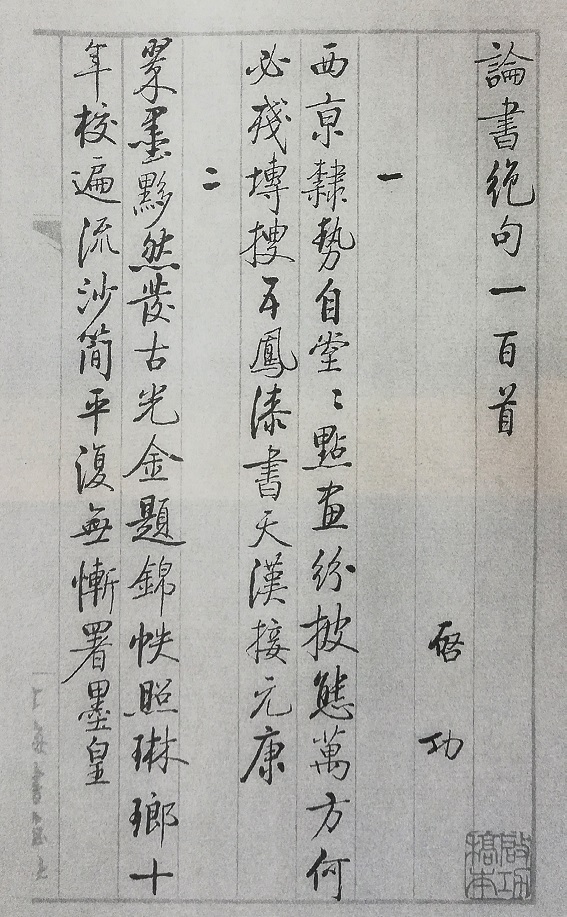 論書絕句一百首
启功
啟功
稿本
一
西京隸勢自堂〻點畫紛披態萬方何
必殘塼搜五鳳漆書天漢接元康
二
翠墨黟然發古光金題錦帙照琳瑯十
年校遍流沙簡平復無慚署墨皇